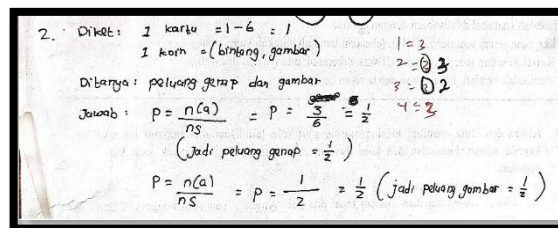 2. Diket : 1 kartu = 1-6 = 1
1 koin = (bintang, gambar)
Ditanya : peluang genap dan gambar
Jawab : P = n(a)/ns = P = 3/6 = 1/2
(Jadi peluang genap = 1/2)
P = n(a)/ns = P = 1/2 = 1/2 (jadi peluang gambar = 1/2)
1 = 3
2 = 3
3 = 2
4 = 3